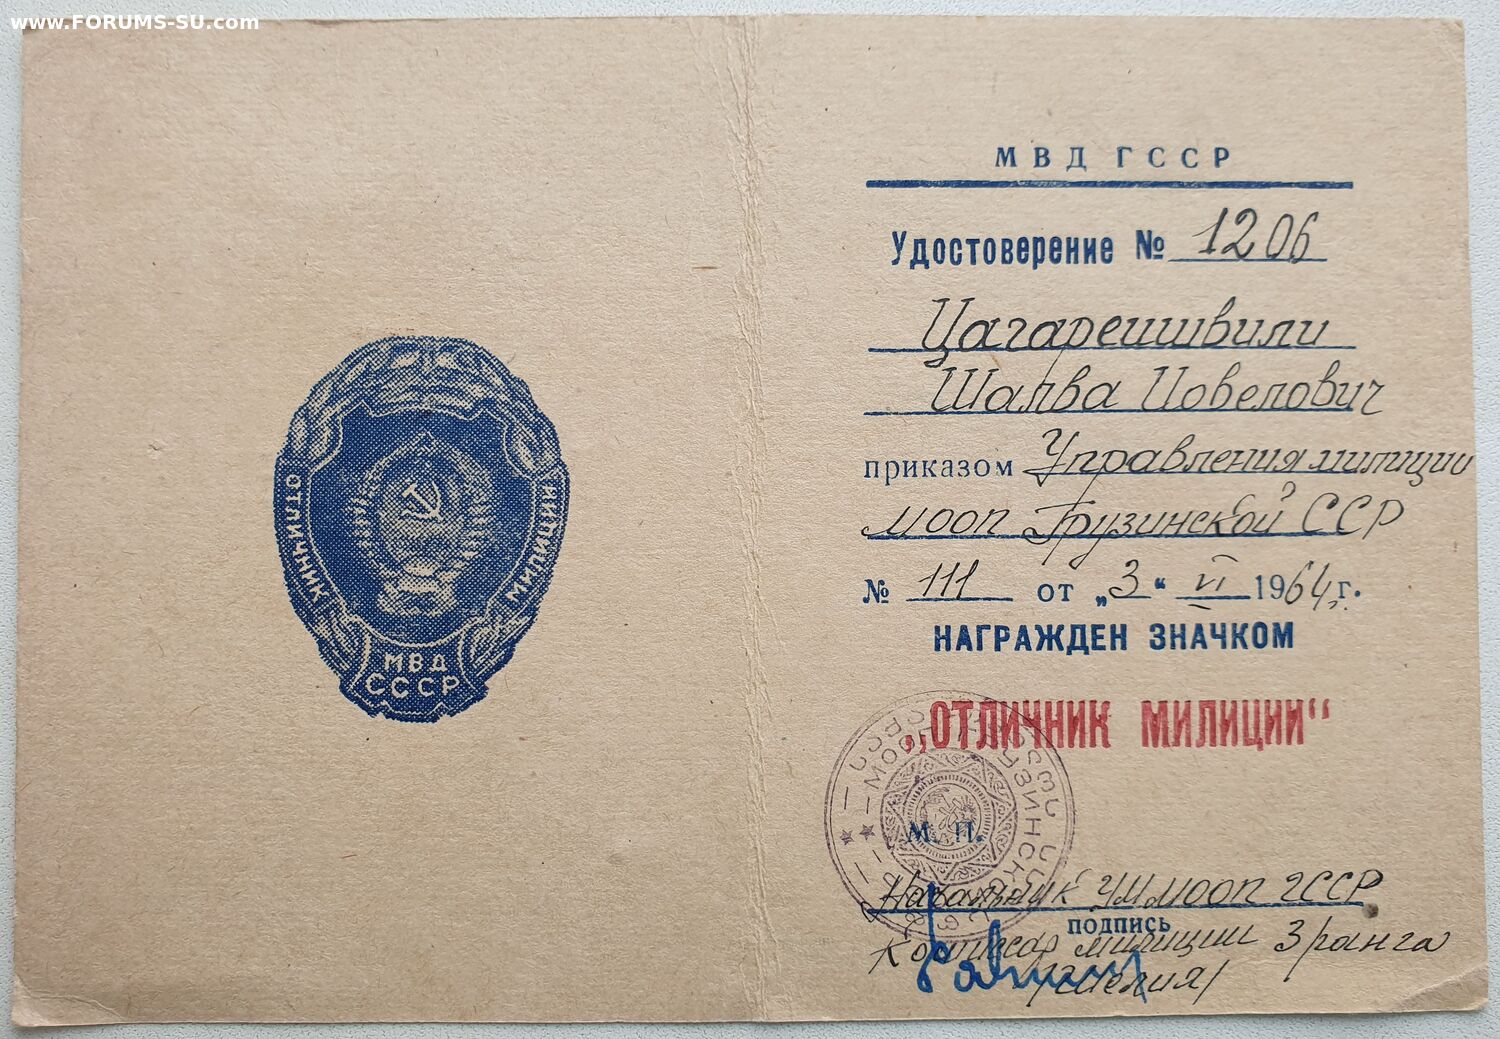 www.FORUMS-SU.com
ОТЛИЧНИК МИЛИЦИИ
МВД
СССР
МВД ГССР
Удостоверение № 1206
Цагареишвили
Шалва Иовелович
приказом Управления милиции
МООП Грузинской ССР
№ 111 от „3“ VI 1964 г.
НАГРАЖДЕН ЗНАЧКОМ
„ОТЛИЧНИК МИЛИЦИИ“
М. П.
Начальник УМ МООП ГССР
подпись
Комиссар милиции 3 ранга